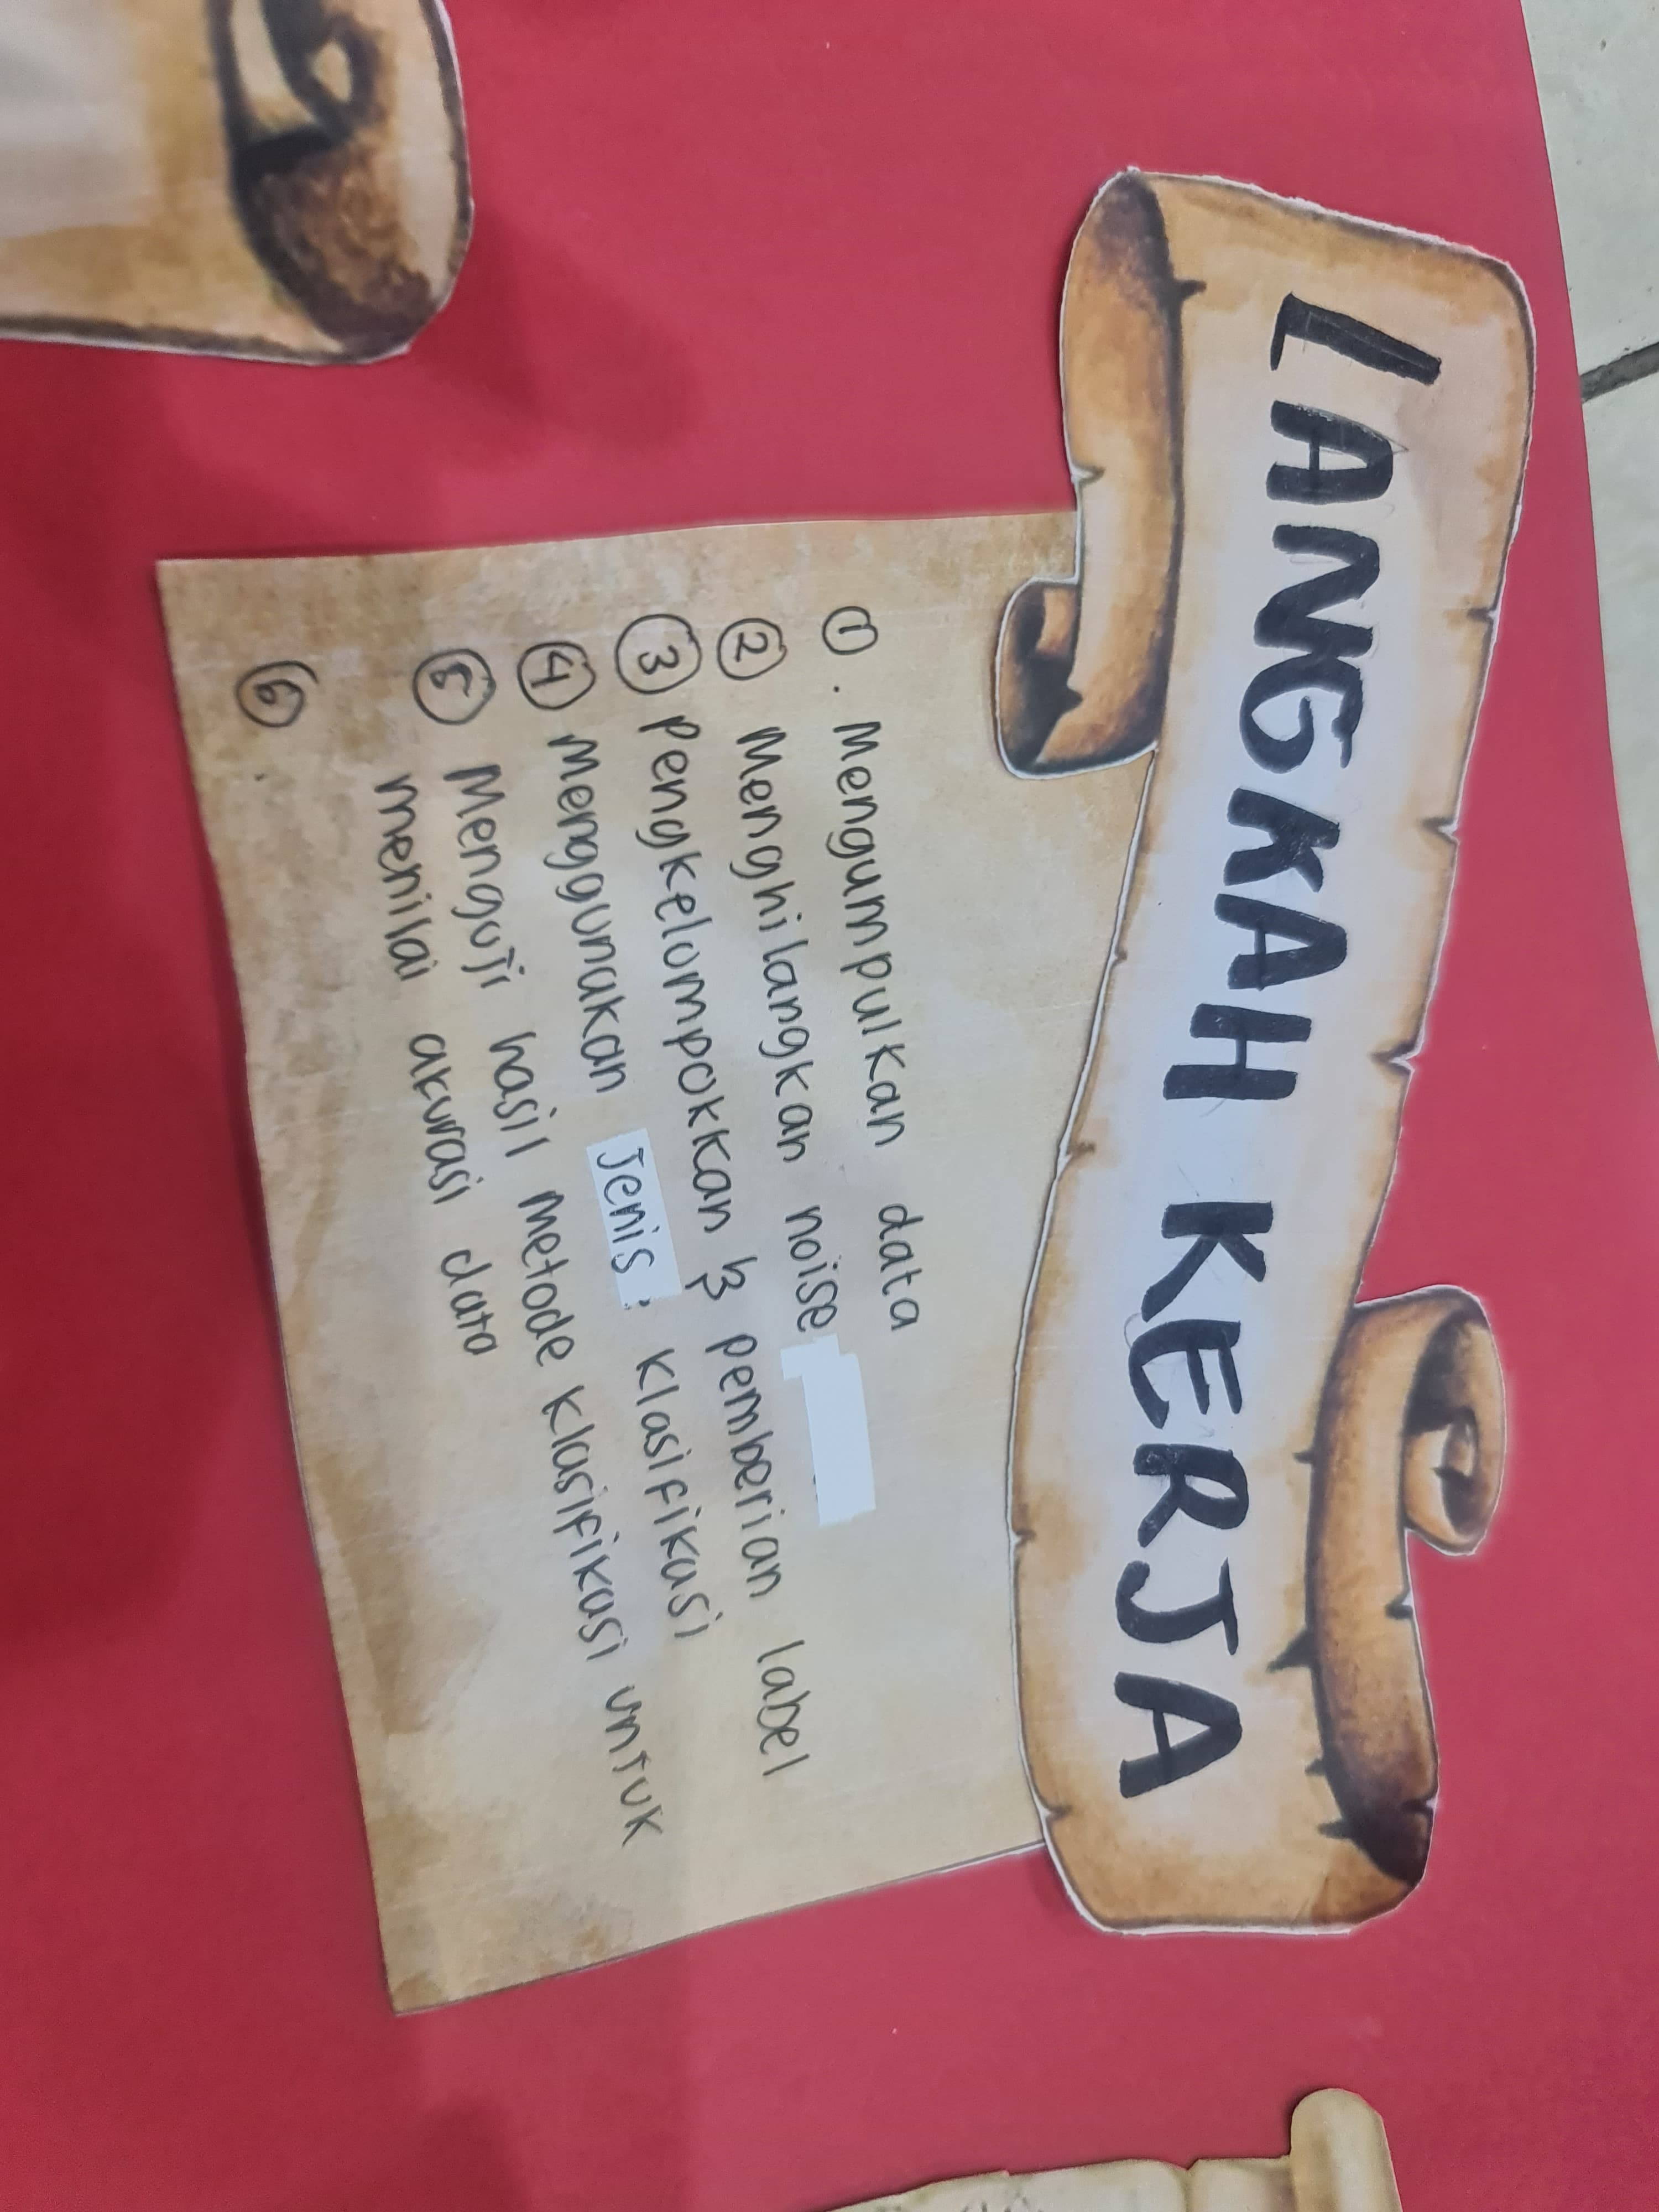 LANGKAH KERJA
①. Mengumpulkan data
② Menghilangkan noise
③ Pengkelompokkan & pemberian label
④ Menggunakan Jenis: Klasifikasi
⑤ Menguji hasil metode klasifikasi untuk
menilai akurasi data
⑥.